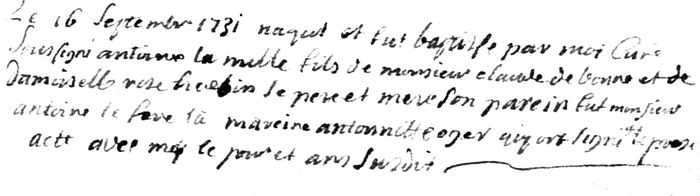 Le 16 Septembre 1731 naquit et fut baptisse par moi Curé
Soussigné antoine la mulle fils de monsieur claude de bonne et de
Damoiselle rose le pere et mere son parein fut monsieur
antoine le fevre la mareine antoinette oger qui ont signé le present
acte avec moy le jour et ans susdit